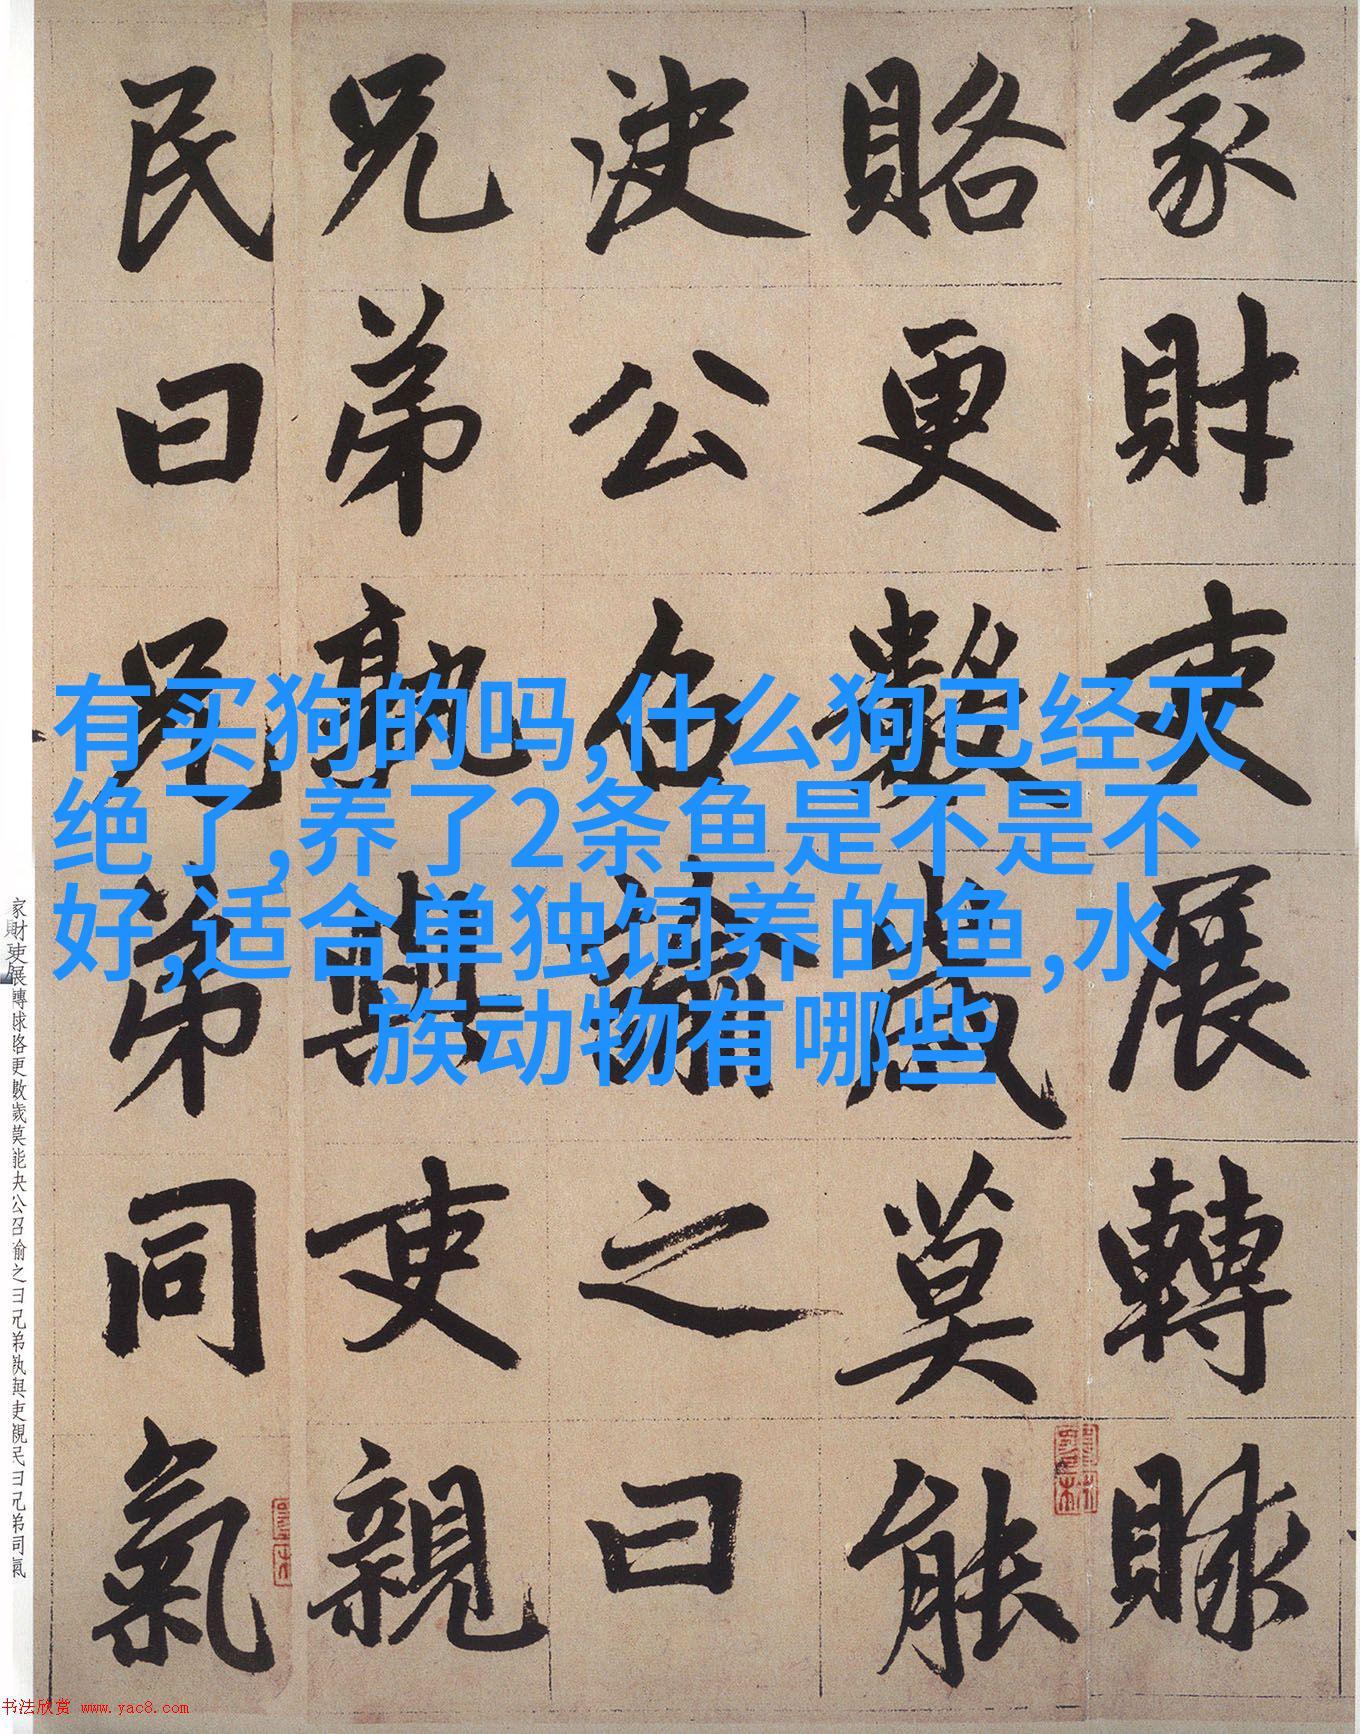 家財吏展轉賕
賂更數歲莫能
決公召諭之曰
兄弟孰與吏親
民曰兄弟同氣
有买狗的吗,什么狗已经灭
绝了,养了2条鱼是不是不
好,适合单独饲养的鱼,水
族动物有哪些
家財吏展轉賕賂更數歲莫能决公召諭之曰兄弟孰與吏親民曰兄弟同氣
书法欣赏 www.yac8.com